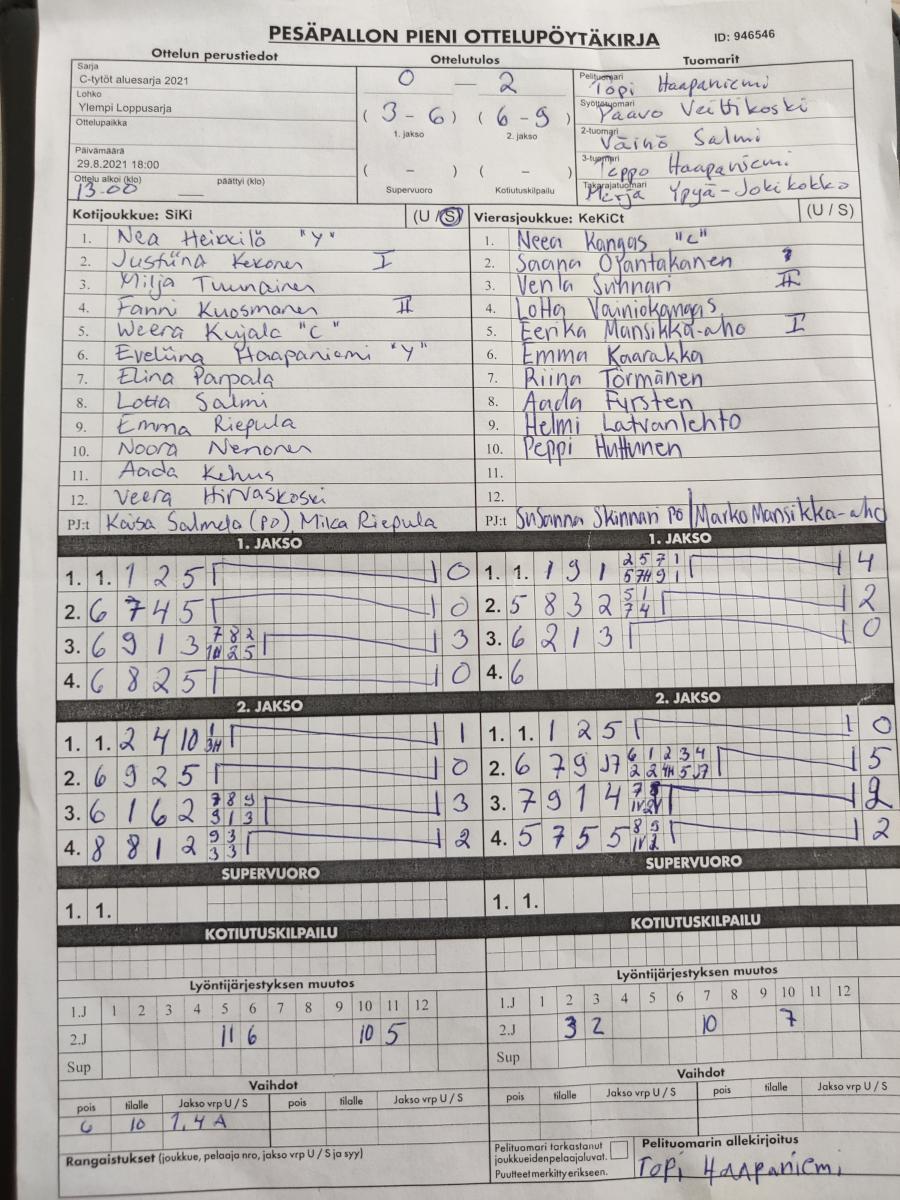 PESÄPALLON PIENI OTTELUPÖYTÄKIRJA ID: 946546
Ottelun perustiedot Ottelutulos Tuomarit
Sarja
C-tytöt aluesarja 2021
Lohko
Ylempi Loppusarja
Ottelupaikka
Päivämäärä
29.8.2021 18:00
Ottelu alkoi (klo) päättyi (klo)
13.00
0 — 2
(3 - 6) (6 - 9)
1. jakso 2. jakso
( - ) ( - )
Supervuoro Kotiutuskilpailu
Pelituomari Topi Haapaniemi
Syöttötuomari Paavo Veittikoski
2-tuomari Väinö Salmi
3-tuomari Teppo Haapaniemi
Takarajatuomari Merja Ypyä-Jokikokko
Kotijoukkue: SiKi (U / S)
1. Nea Heikkilä "Y"
2. Justiina Kekonen I
3. Milja Tuunainen
4. Fanni Kuosmanen II
5. Weera Kujala "C"
6. Eveliina Haapaniemi "Y"
7. Elina Parpala
8. Lotta Salmi
9. Emma Riepula
10. Noora Nenonen
11. Aada Kehus
12. Veera Hirvaskoski
PJ:t Kaisa Salmela (PO), Mika Riepula
Vierasjoukkue: KeKiCt (U / S)
1. Neea Kangas "C"
2. Saana Ojantakanen
3. Venla Suhnari II
4. Lotta Vainiokangas
5. Eerika Mansikka-aho I
6. Emma Kaarakka
7. Riina Törmänen
8. Aada Fyrsten
9. Helmi Latvanlehto
10. Peppi Huttunen
11.
12.
PJ:t Susanna Skinnari PO Marko Mansikka-aho
1. JAKSO
1. 1. 1 2 5 0
2. 6 7 4 5 0
3. 6 9 1 3 7 8 2 3
4. 6 8 2 5 0
1. JAKSO
1. 1. 1 9 1 2 5 7 1 5 7H 9 1 4
2. 5 8 3 2 5 1 7 4 2
3. 6 2 1 3 0
4. 6
2. JAKSO
1. 1. 2 4 10 1 3H 1
2. 6 9 2 5 0
3. 6 1 6 2 7 8 9 3 1 3 3
4. 8 8 1 2 9 3 3 3 2
2. JAKSO
1. 1. 1 2 5 0
2. 6 7 9 J7 6 1 2 3 4 2 2 4H 5 J7 5
3. 7 9 1 4 2
4. 5 7 5 5 2
SUPERVUORO
1. 1.
SUPERVUORO
1. 1.
KOTIUTUSKILPAILU
KOTIUTUSKILPAILU
Lyöntijärjestyksen muutos
1.J 1 2 3 4 5 6 7 8 9 10 11 12
2.J 11 6 10 5
Sup
Lyöntijärjestyksen muutos
1.J 1 2 3 4 5 6 7 8 9 10 11 12
2.J 3 2 10 7
Sup
Vaihdot
pois tilalle Jakso vrp U / S pois tilalle Jakso vrp U / S
6 10 1.4 A
Vaihdot
pois tilalle Jakso vrp U / S pois tilalle Jakso vrp U / S
Rangaistukset (joukkue, pelaaja nro, jakso vrp U / S ja syy)
Pelituomari tarkastanut
joukkueiden pelaajaluvat.
Puutteet merkitty erikseen.
Pelituomarin allekirjoitus
Topi Haapaniemi